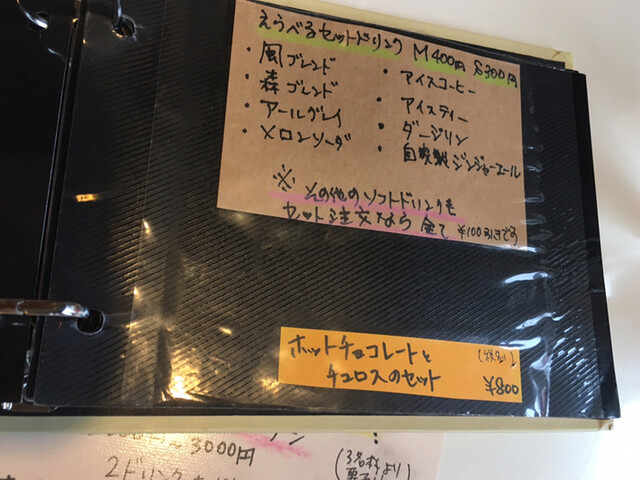 えらべるセットドリンク M400円 S300円
・風ブレンド ・アイスコーヒー
・森ブレンド ・アイスティー
・アールグレイ ・ダージリン
・メロンソーダ ・自家製ジンジャーエール
※その他のソフトドリンクも
セット注文なら全て ¥100引きです
ホットチョコレートと (税別)
チュロスのセット ¥800
～3000円
2ドリンク
(3名様より